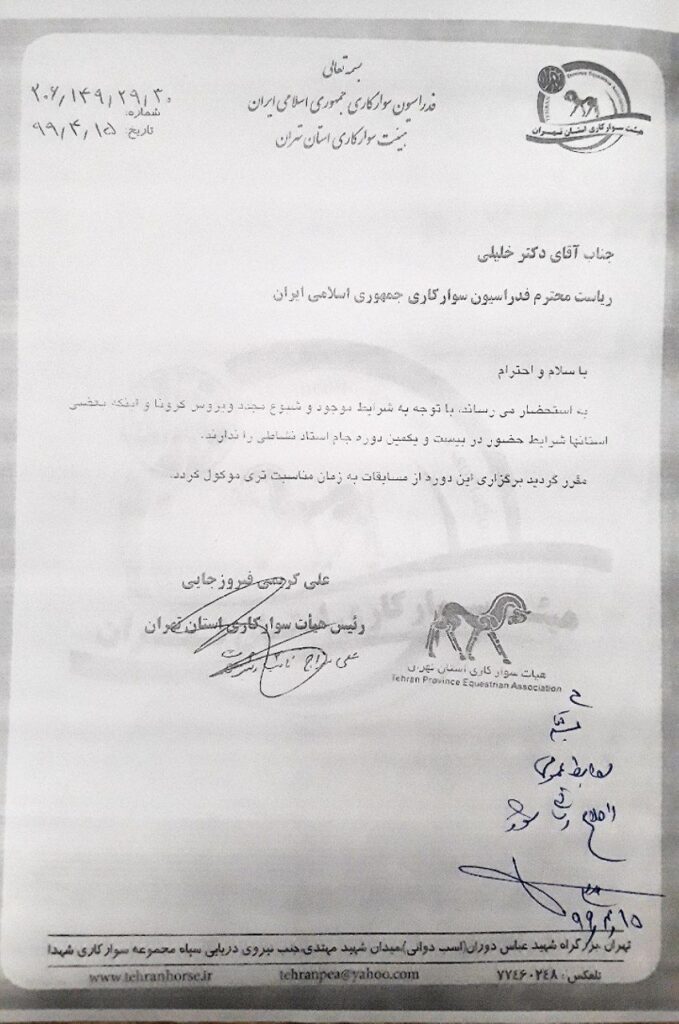 بسمه تعالی
فدراسیون سوارکاری جمهوری اسلامی ایران
هیئت سوارکاری استان تهران
۲۰۶/۱۴۹/۲۹/۳۰
شماره:
تاریخ: ۹۹/۴/۱۵
Tehran Province Equestrian Association
هیئت سوارکاری استان تهران
جناب آقای دکتر خلیلی
ریاست محترم فدراسیون سوارکاری جمهوری اسلامی ایران
با سلام و احترام
به استحضار می رساند، با توجه به شرایط موجود و شیوع مجدد ویروس کرونا و اینکه بعضی
استانها شرایط حضور در بیست و یکمین دوره جام استاد نشاطی را ندارند.
مقرر گردید برگزاری این دوره از مسابقات به زمان مناسبت تری موکول گردد.
علی کریمی فیروزجایی
رئیس هیأت سوارکاری استان تهران
هیات سوارکاری استان تهران
Tehran Province Equestrian Association
روابط عمومی
اعلام رسانی شود
۹۹/۴/۱۵
تهران بزرگراه شهید عباس دوران(اسب دوانی)میدان شهید مهتدی،جنب نیروی دریایی سپاه مجموعه سوارکاری شهدا
تلفکس: ۷۷۴۶۰۲۴۸
tehranpea@yahoo.com
www.tehranhorse.ir